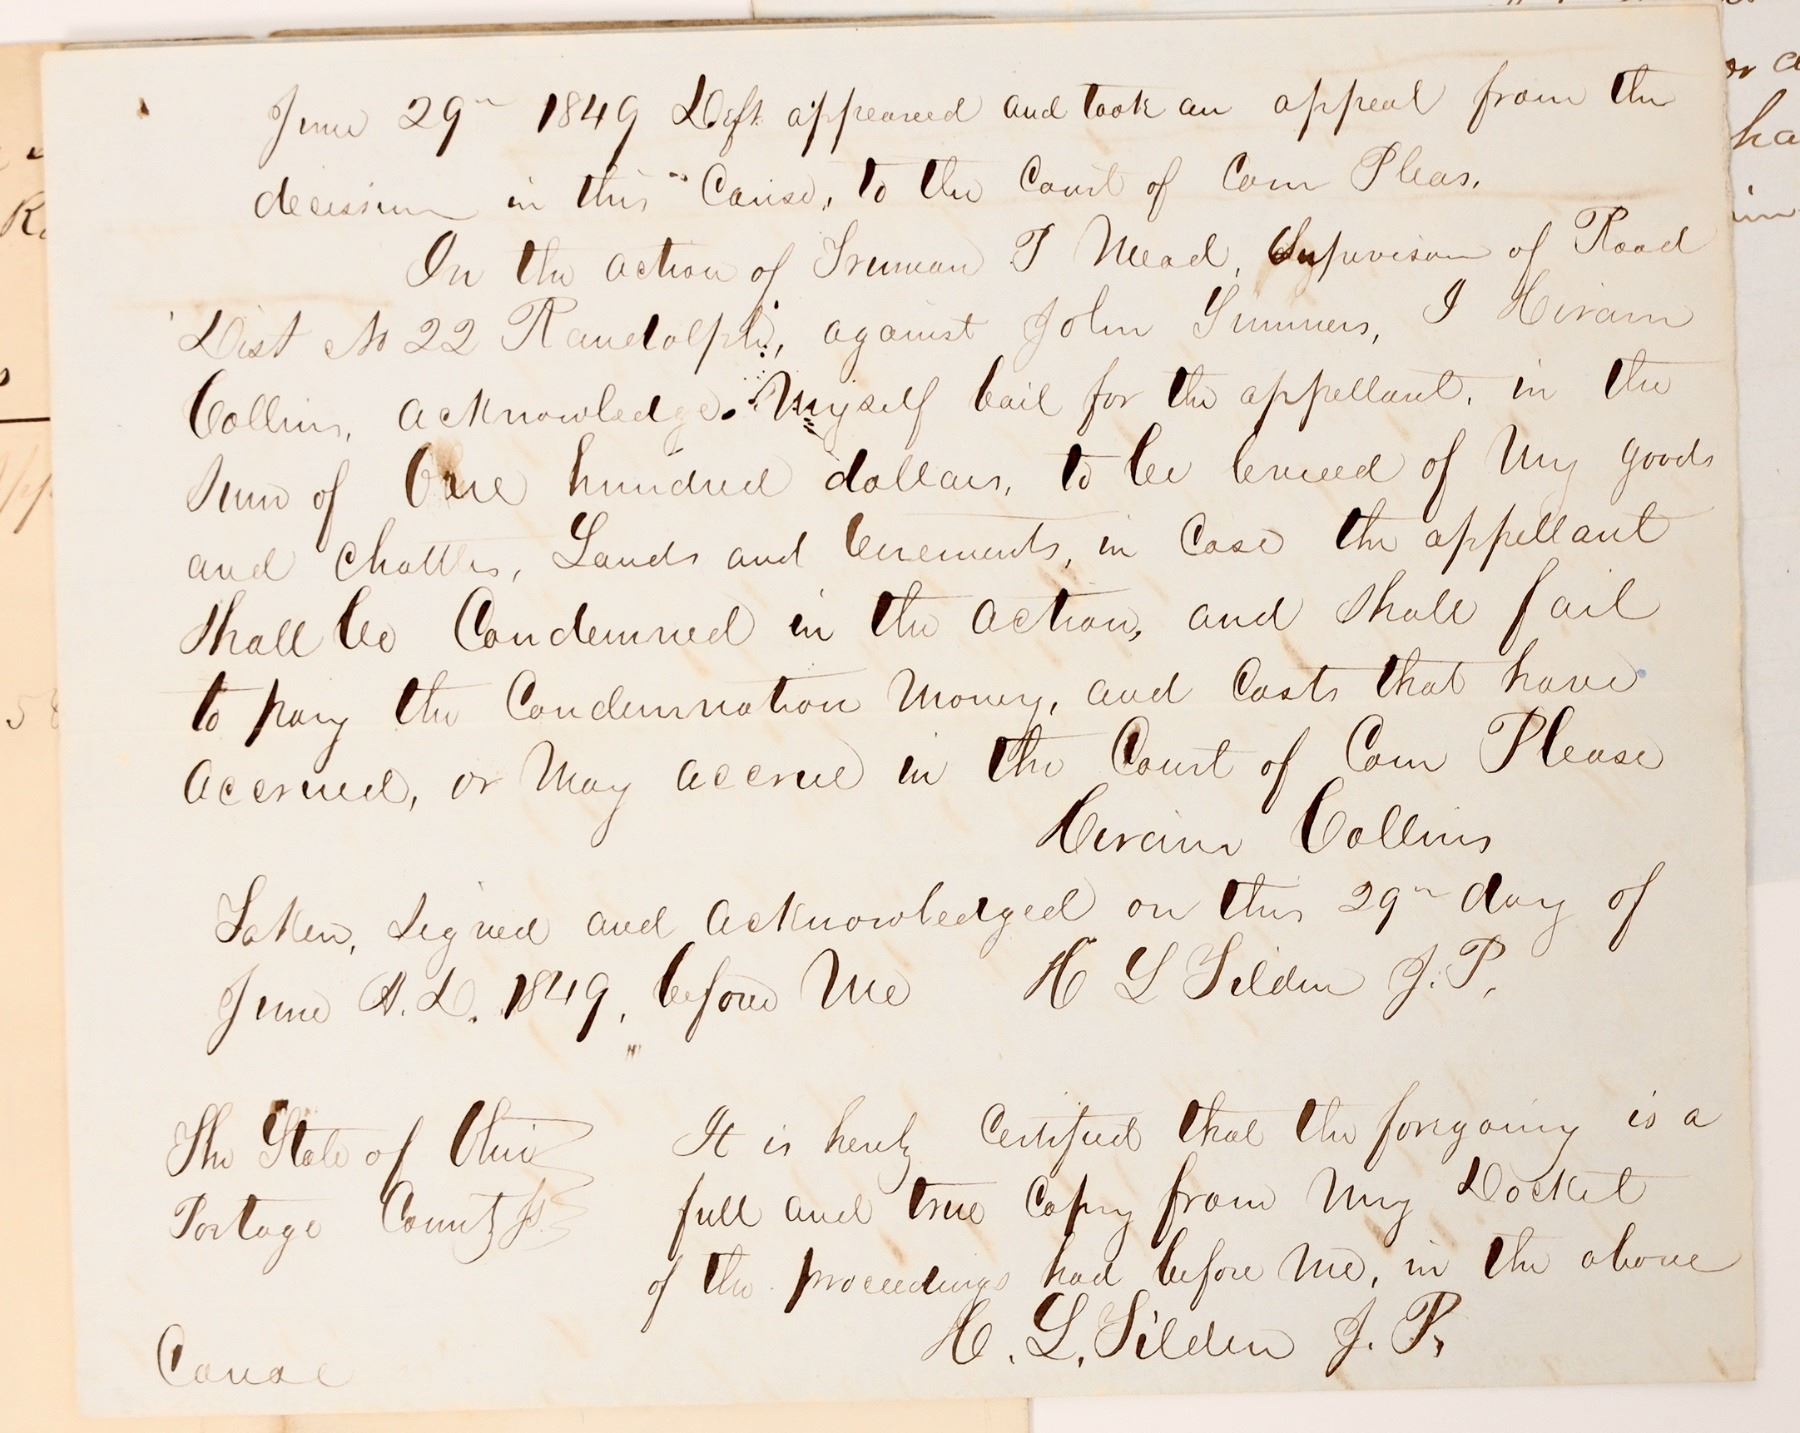 June 29th 1849 Deft. appeared and took an appeal from the
decision in this Cause, to the Court of Com Pleas.
In the action of Truman T Mead, Supervisor of Road
Dist No 22 Randolph, against John Simmers, I Hiram
Collins, acknowledge Myself bail for the appellant, in the
sum of One hundred dollars, to be levied of My goods
and Chattles, Lands and tenements, in Case the appellant
shall be Condemned in the action, and shall fail
to pay the Condemnation Money, and Costs that have
accrued, or May accrue in the Court of Com Please
Hiram Collins
Taken, signed and acknowledged on this 29th day of
June A.D. 1849, before Me H L Tilden J.P.
The State of Ohio
Portage County Ss.
It is hereby Certified that the foregoing is a
full and true Copy from My Docket
of the proceedings had before Me, in the above
H. L. Tilden J. P.